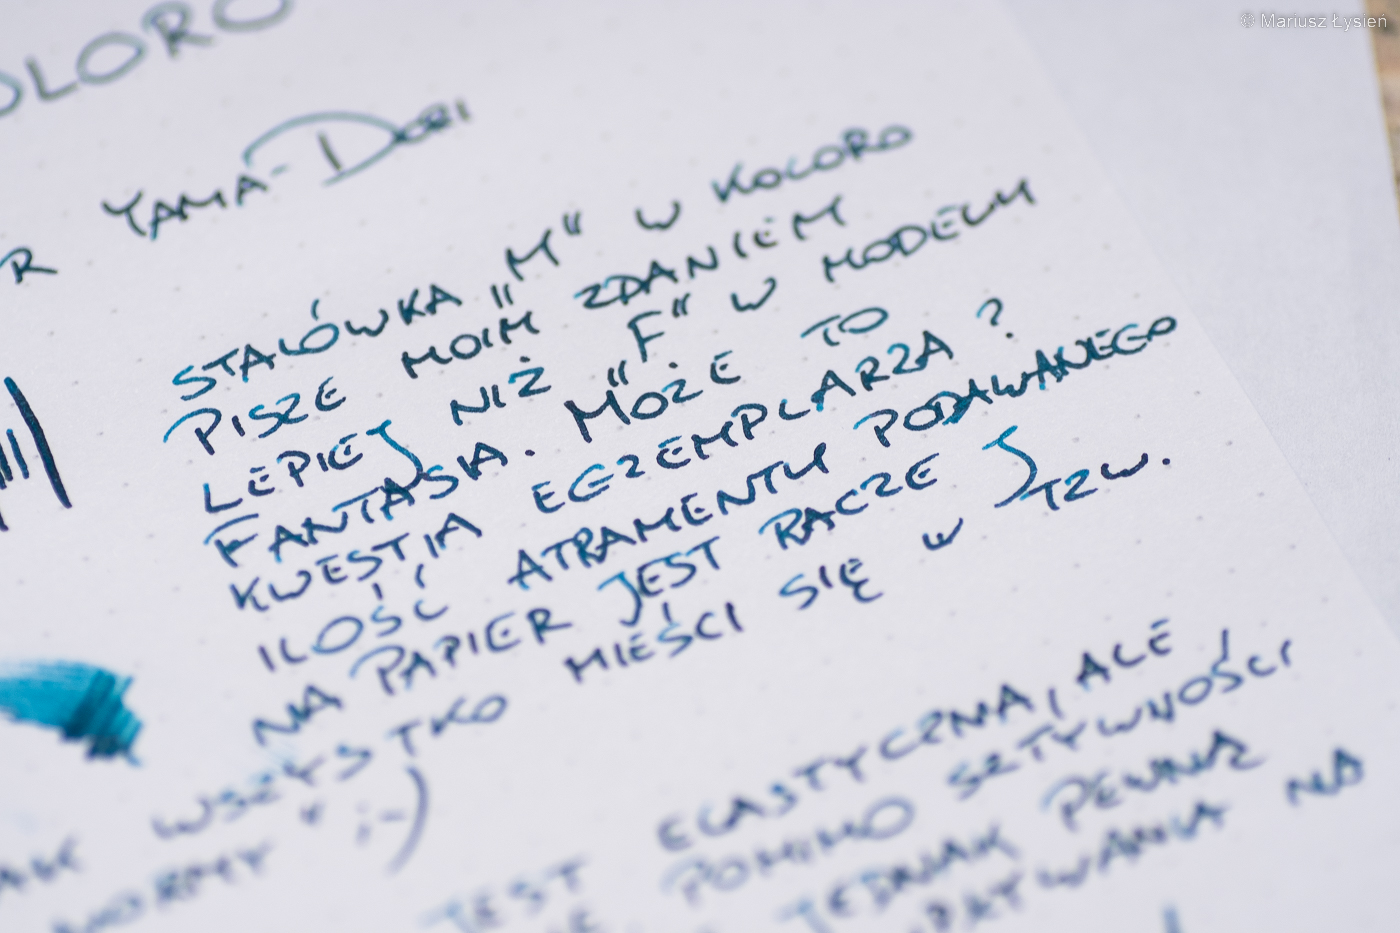 © Mariusz Łysień
OLORO
R YAMA-DORI
STALÓWKA „M" W KOLORO
PISZE MOIM ZDANIEM
LEPIEJ NIŻ „F" W MODELU
FANTASIA. MOŻE TO
KWESTIA EGZEMPLARZA?
ILOŚĆ ATRAMENTU PODAWANEGO
NA PAPIER JEST RACZEJ
WSZYSTKO MIEŚCI SIĘ W TZW.
NORMY" ;-)
JEST ELASTYCZNA, ALE
POMIMO SZTYWNOŚCI
JEDNAK PEWNĄ
NA